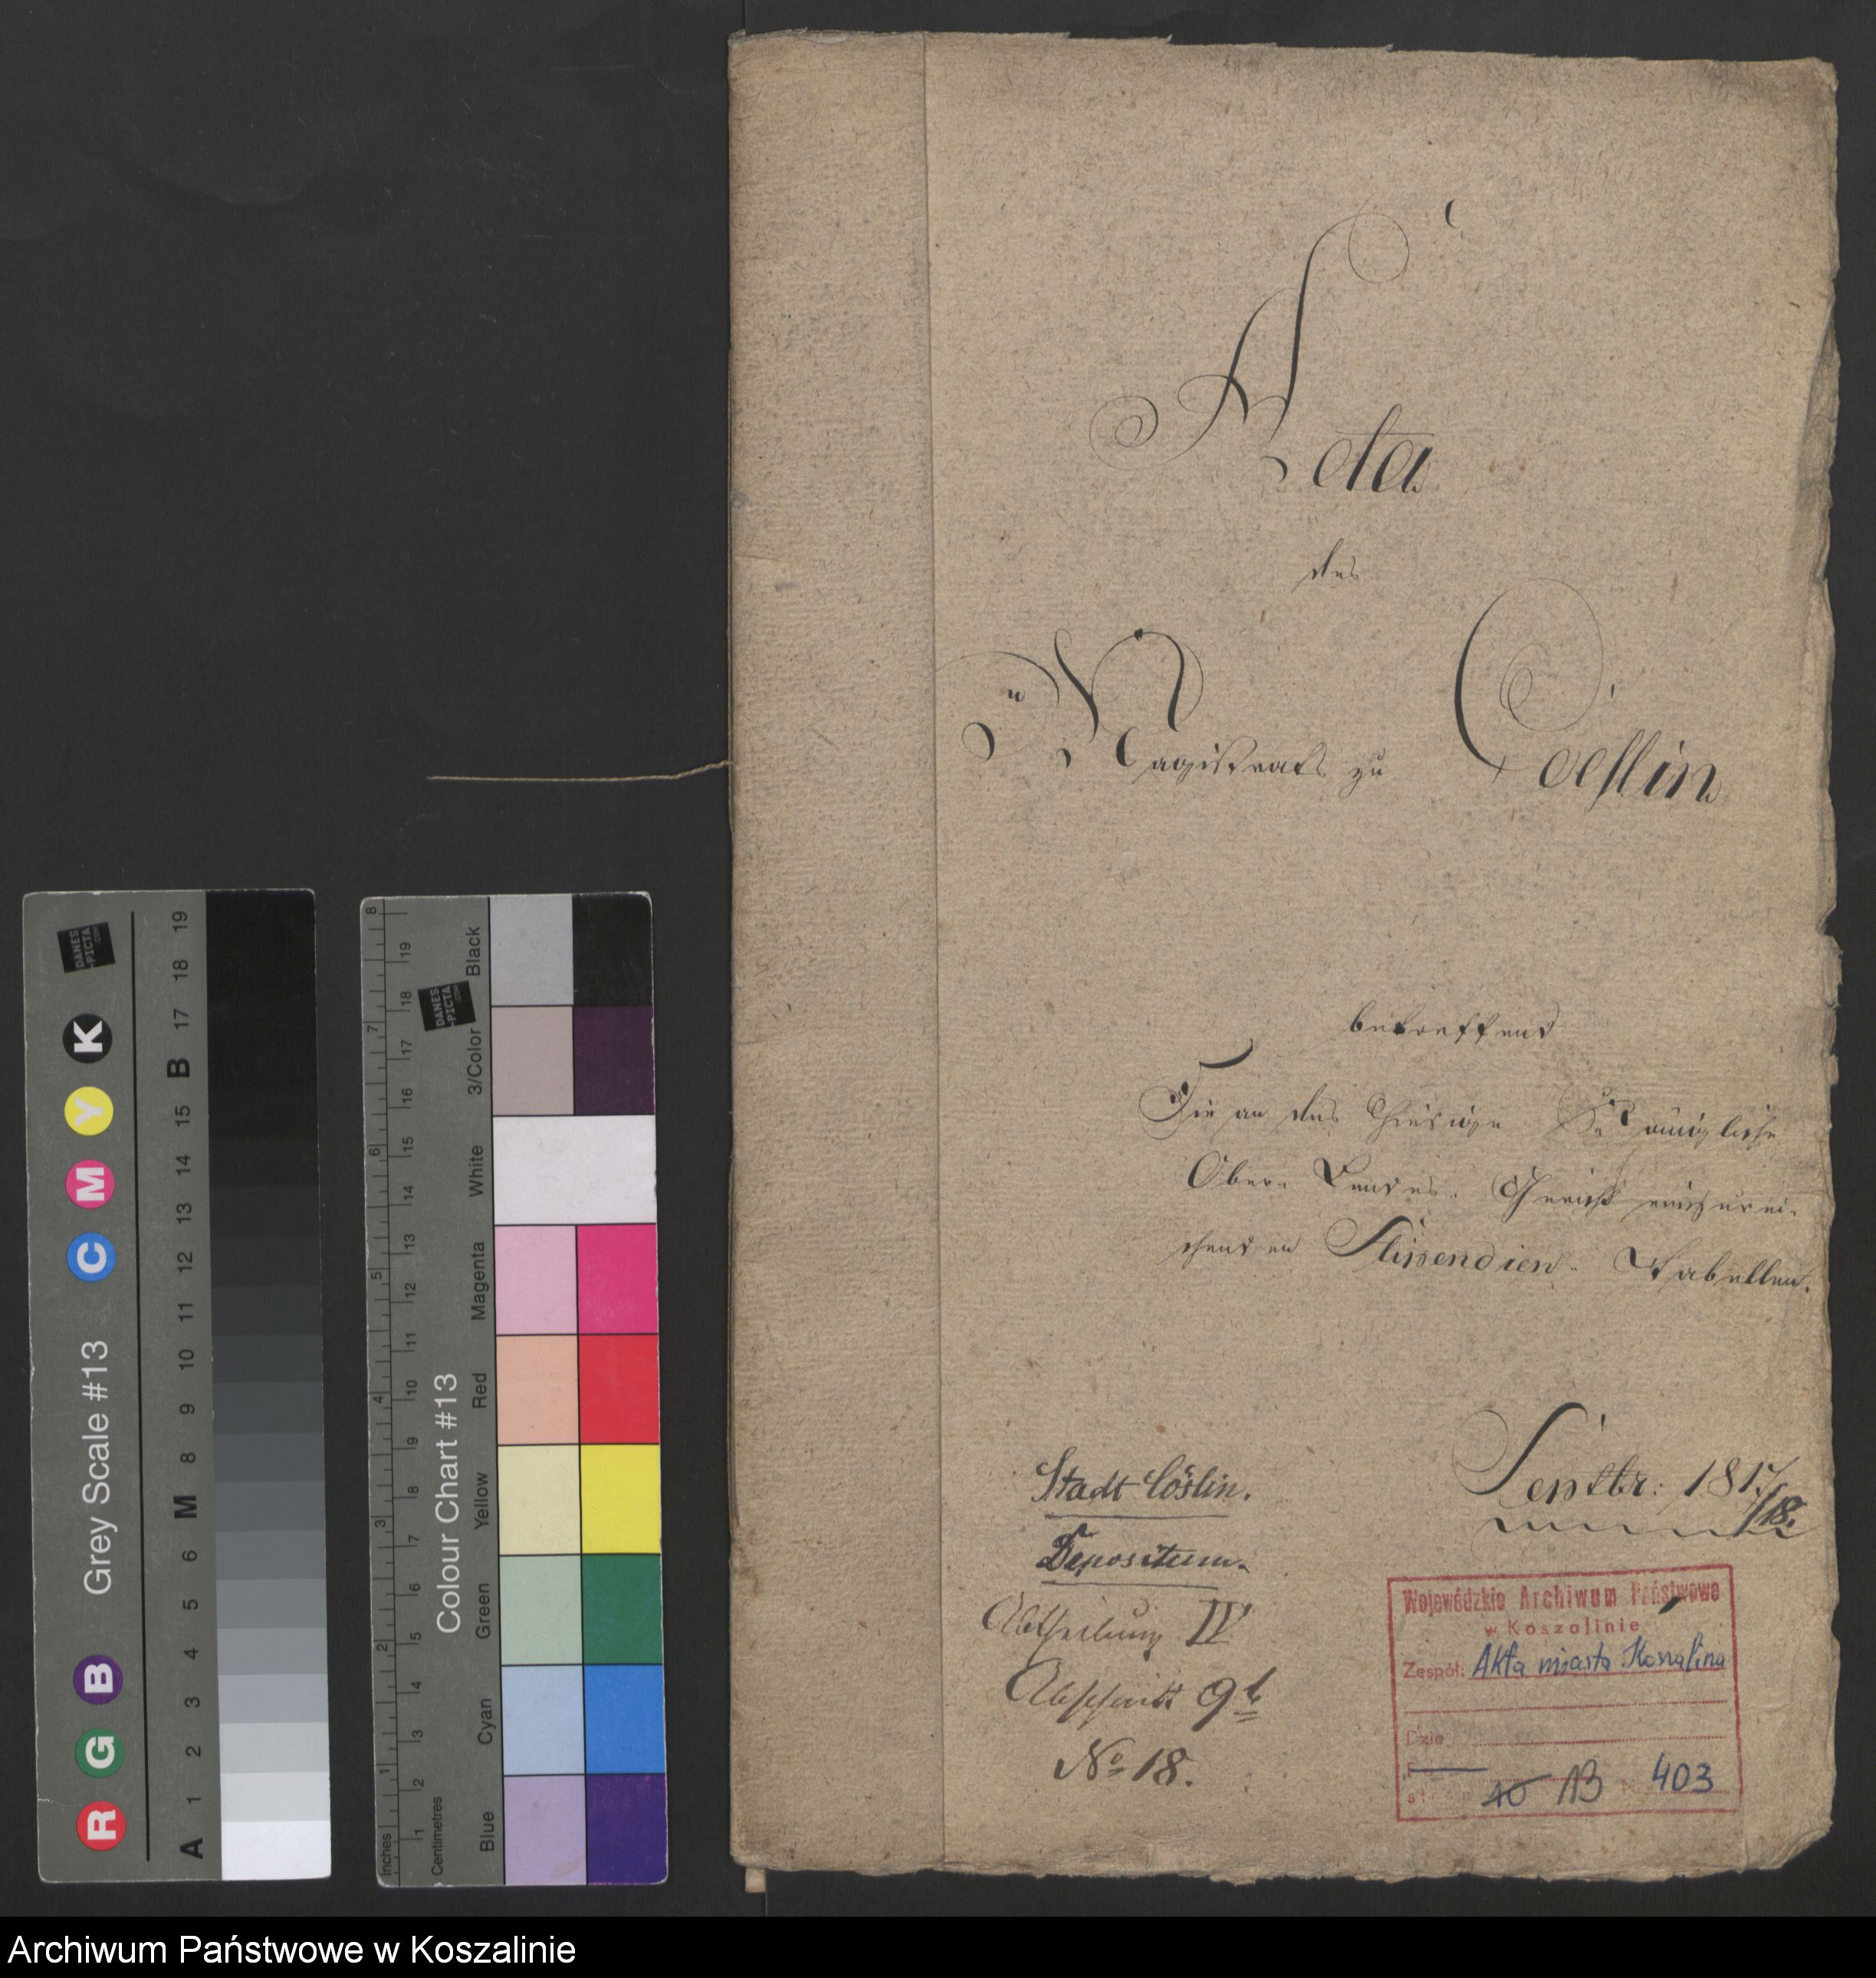 Acta
des
Magistrats zu Coeslin
betreffend
Die an das Hiesige Königliche
Ober-Landes-Gericht einzurei-
chenden Stipendien-Tabellen.
Septbr: 1817/18.
Stadt Cöslin.
Depositum.
Abtheilung IV
Abschnitt 9b
No 18.
Wojewódzkie Archiwum Państwowe
w Koszalinie
Zespół: Akta miasta Koszalina
Dział
403
Grey Scale #13
R G B C M Y K
A 1 2 3 4 5 6 M 8 9 10 11 12 13 14 15 B 17 18 19
DANES
-PICTA
.COM
Colour Chart #13
DANES
-PICTA
.COM
Blue Cyan Green Yellow Red Magenta White 3/Color Black
Inches 1 2 3 4 5 6 7 8
Centimetres 1 2 3 4 5 6 7 8 9 10 11 12 13 14 15 16 17 18 19
Archiwum Państwowe w Koszalinie